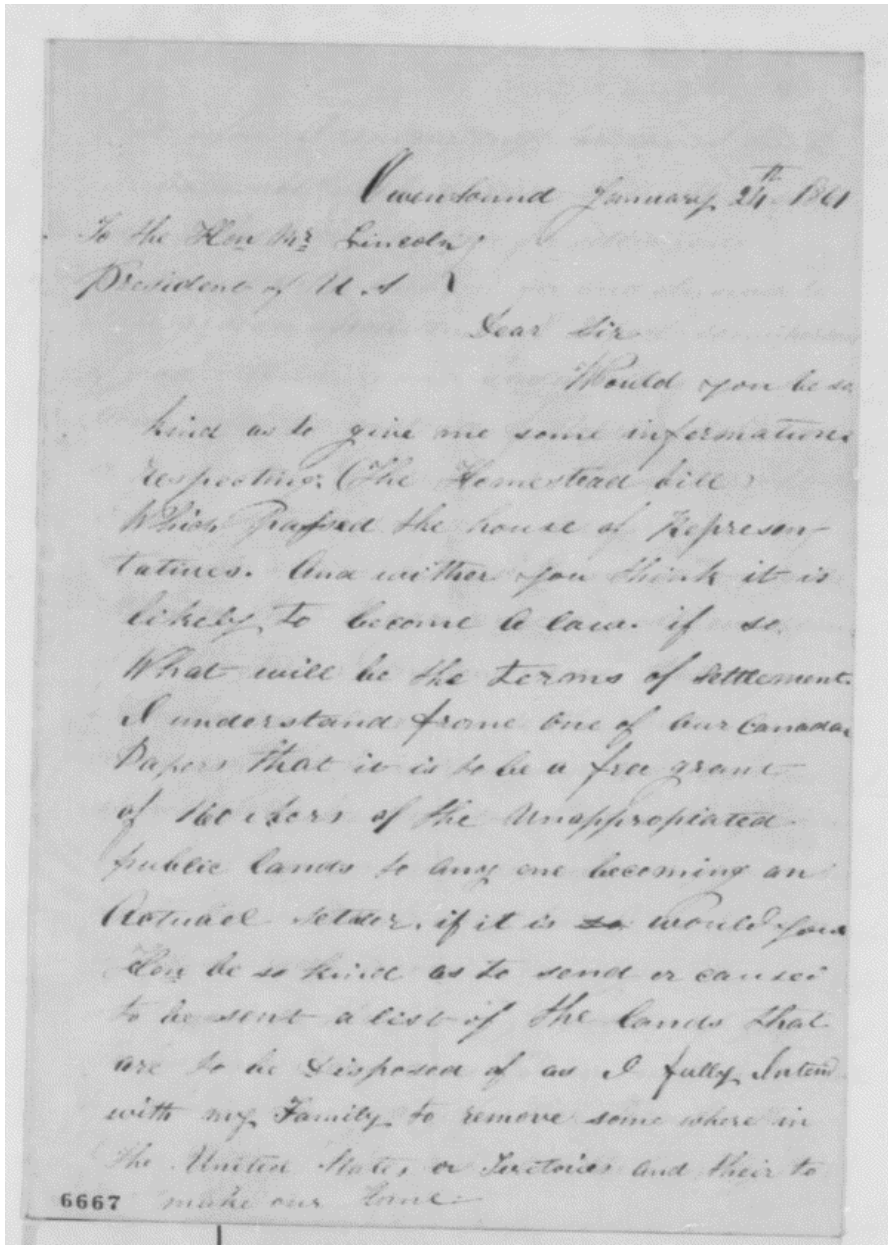 Owensound January 24th 1861
To the Hon Mr Lincoln
President of U. S
Dear Sir
Would you be so
kind as to give me some information
respecting (The Homestead bill)
Which Passed the house of Represen-
tatives. And wither you think it is
likely to become a law. if so.
What will be the terms of settlement.
I understand frome one of our Canadan
Papers that it is to be a free grant
of 160 Akers of the Unappropiated
public lands to any one becoming an
Actuael settler. if it is so would your
Hon be so kind as to send or cause
to be sent a list of the lands that
are to be disposed of as I fully Intend
with my Family to remove some where in
the United States or Teritories and their to
make our home
6667